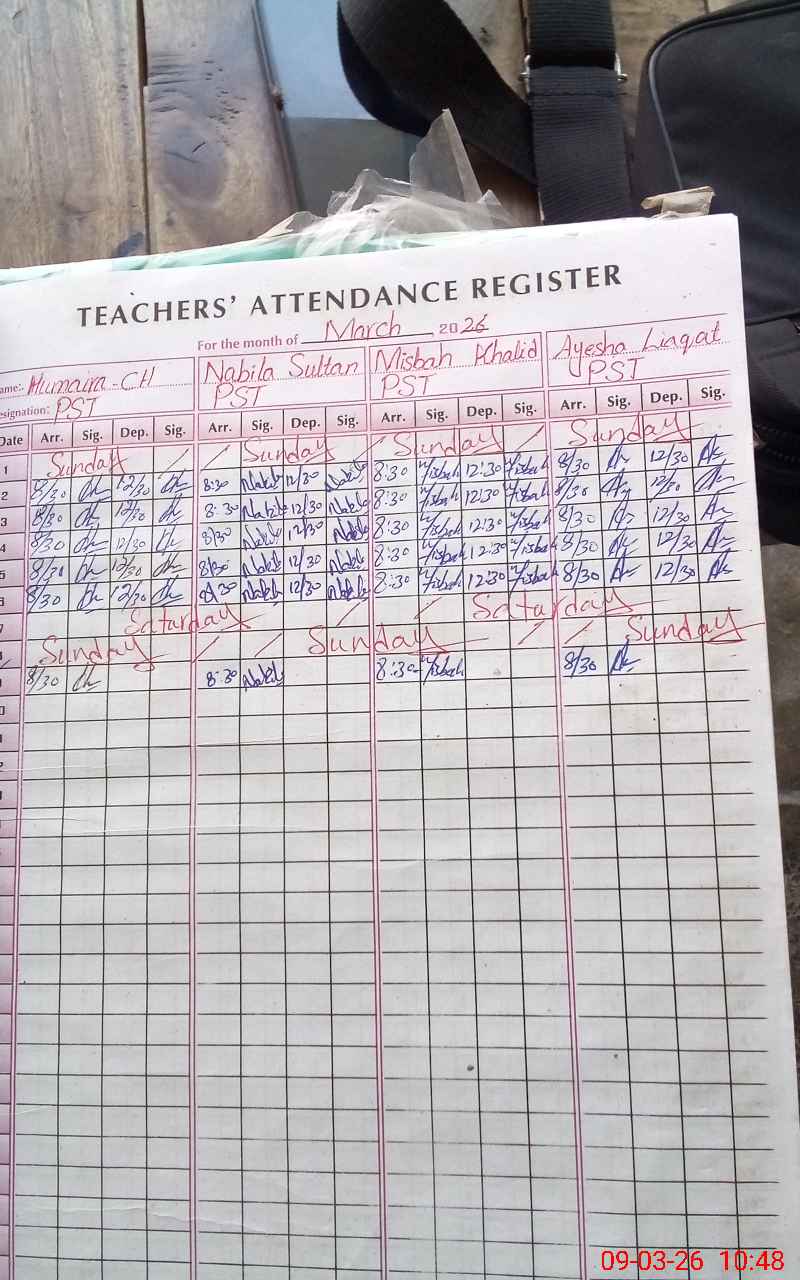 TEACHERS' ATTENDANCE REGISTER
For the month of March 2026
ame:. Humaira-CH Nabila Sultan Misbah Khalid Ayesha Liaqat
esignation: PST PST PST PST
Date Arr. Sig. Dep. Sig. Arr. Sig. Dep. Sig. Arr. Sig. Dep. Sig. Arr. Sig. Dep. Sig.
1 Sunday Sunday Sunday Sunday
2 8/30 12/30 8:30 Nabila 12/30 Nabila 8:30 Misbah 12:30 Misbah 8/30 12/30
3 8/30 12/30 8:30 Nabila 12/30 Nabila 8:30 Misbah 12:30 Misbah 8/30 12/30
4 8/30 12/30 8/30 Nabila 12/30 Nabila 8:30 Misbah 12:30 Misbah 8/30 12/30
5 8/30 12/30 8/30 Nabila 12/30 Nabila 8:30 Misbah 12:30 Misbah 8/30 12/30
6 8/30 12/30 8:30 Nabila 12/30 Nabila 8:30 Misbah 12:30 Misbah 8/30 12/30
7 Saturday Saturday
Sunday Sunday Sunday
8/30 8:30 Nabila 8:30 Misbah 8/30
09-03-26 10:48